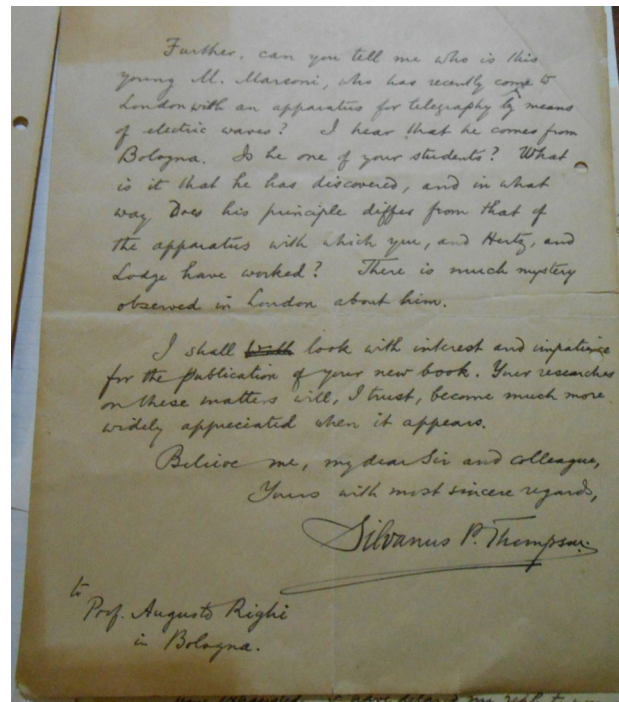 Further, can you tell me who is this
young M. Marconi, who has recently come to
London with an apparatus for telegraphy by means
of electric waves? I hear that he comes from
Bologna. Is he one of your students? What
is it that he has discovered, and in what
way Does his principle differ from that of
the apparatus with which you, and Hertz, and
Lodge have worked? There is much mystery
observed in London about him.
I shall look with interest and impatience
for the publication of your new book. Your researches
on these matters will, I trust, become much more
widely appreciated when it appears.
Believe me, my dear Sir and colleague,
Yours with most sincere regards,
Silvanus P. Thompson.
to
Prof. Augusto Righi
in Bologna.